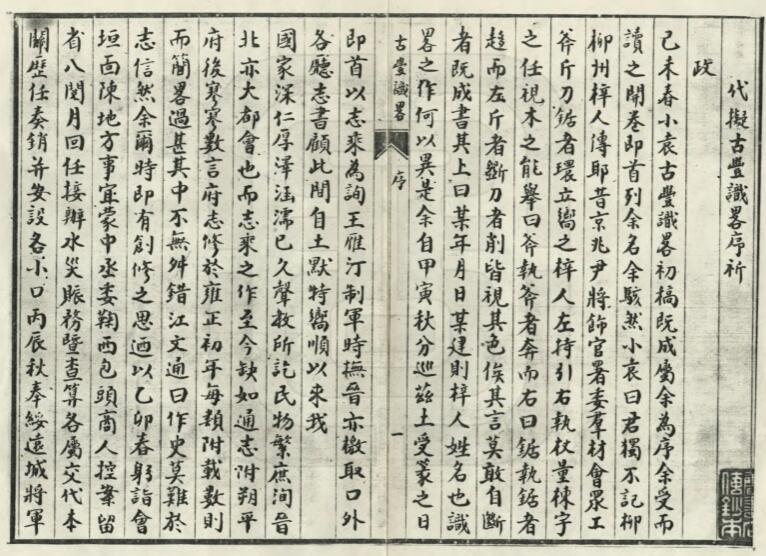 代擬古豐識畧序祈
政
己未春小袁古豐識畧初稿既成屬余為序余受而
讀之開卷即首列余名余駭然小袁曰君獨不記柳
柳州梓人傳耶昔京兆尹將飾官署委羣材會眾工
斧斤刀鋸者環立嚮之梓人左持引右執杖量棟宇
之任視木之能舉曰斧執斧者奔而右曰鋸執鋸者
趨而左斤者斲刀者削皆視其色俟其言莫敢自斷
者既成書其上曰某年月日某建則梓人姓名也識
畧之作何以異是余自甲寅秋分巡茲土受篆之日
古豐識畧
序
一
即首以志乘為詢王雁汀制軍時撫晉亦檄取口外
各廳志書顧此間自土默特嚮順以來我
國家深仁厚澤涵濡已久聲教所訖民物繁庶洵晉
北亦大都會也而志乘之作至今缺如通志附朔平
府後寥寥數言府志修於雍正初年每類附載數則
而簡畧過甚其中不無舛錯江文通曰作史莫難於
志信然余爾時即有創修之思迺以乙卯春躬詣會
垣面陳地方事宜蒙中丞委鞫西包頭商人控案留
省八閱月回任接辦水災賑務暨查算各屬交代本
關歷任奏銷并安設各小口丙辰秋奉綏遠城將軍